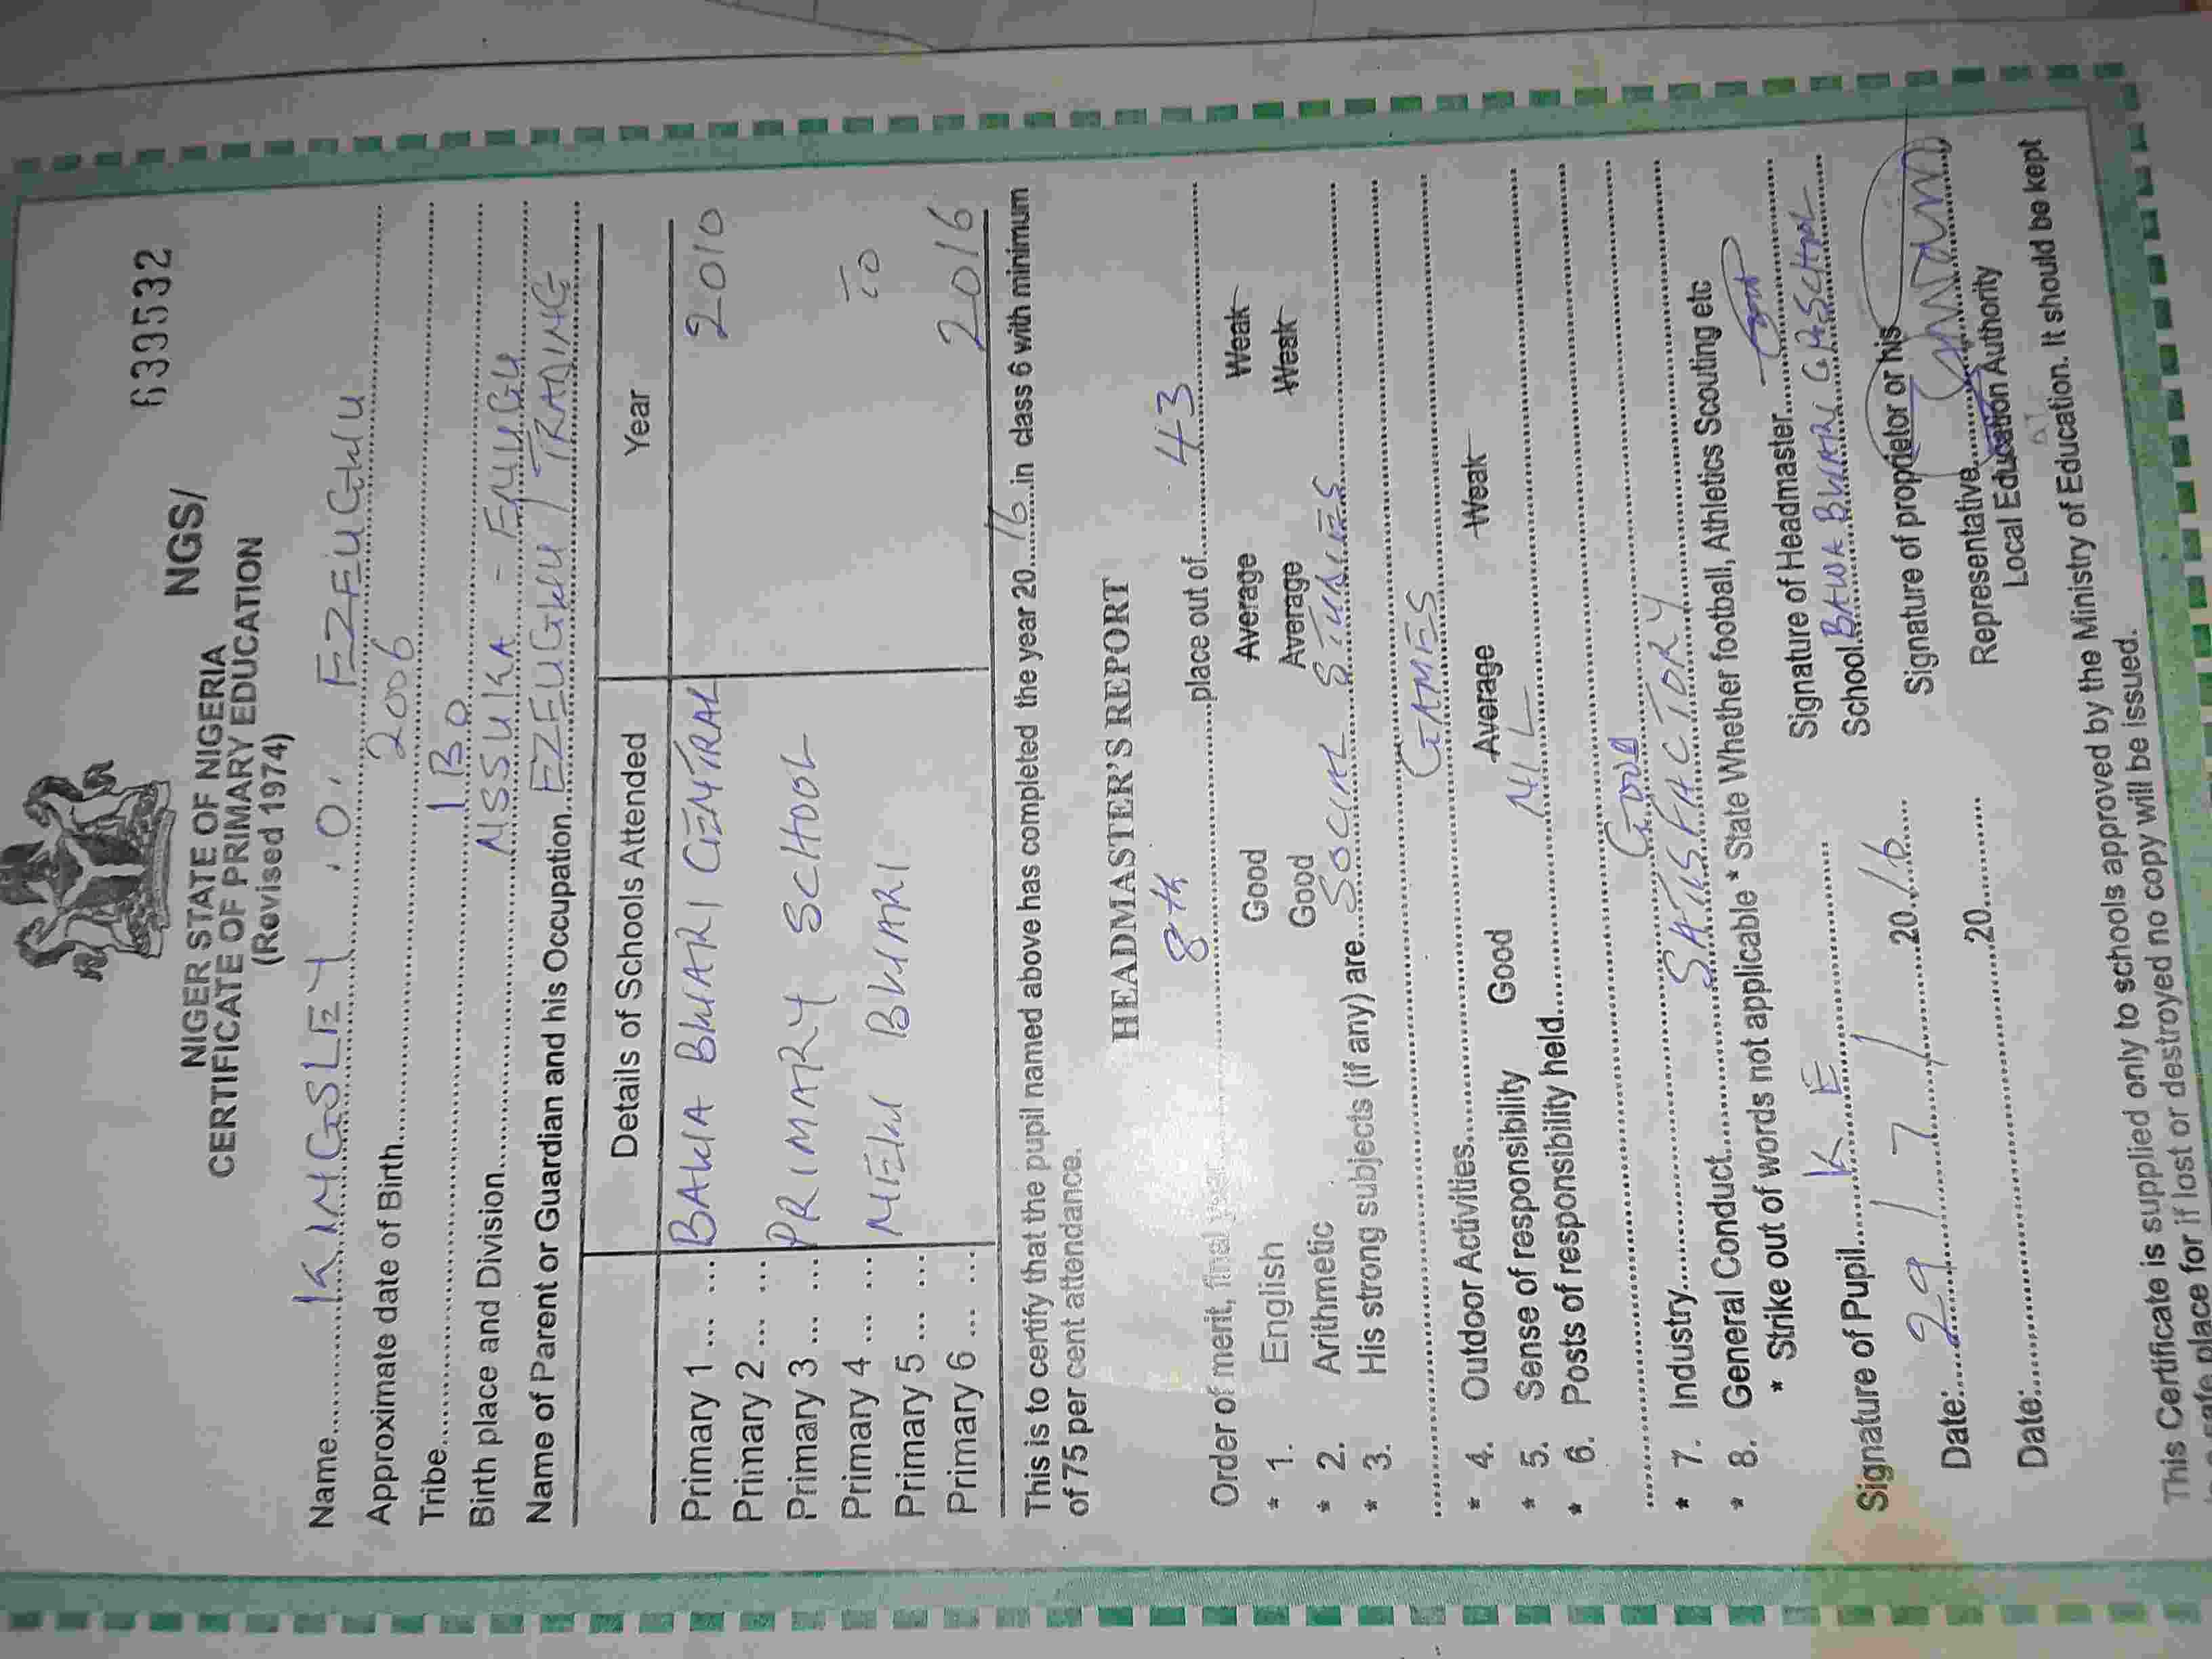 633532
NGS/
NIGER STATE OF NIGERIA
CERTIFICATE OF PRIMARY EDUCATION
(Revised 1974)
Name......KINGSLEY .O. EZEUGWU
Approximate date of Birth......2006
Tribe......IBO
Birth place and Division......NSSUKA - ENUGU
Name of Parent or Guardian and his Occupation...EZEUGWU / TRADING
Details of Schools Attended Year
Primary 1 ... ... BAWA BWARI CENTRAL 2010
Primary 2 ... ...
Primary 3 ... ... PRIMARY SCHOOL
Primary 4 ... ... TO
Primary 5 ... ... NEW BWARI
Primary 6 ... ... 2016
This is to certify that the pupil named above has completed the year 20...16...in class 6 with minimum
of 75 per cent attendance.
HEADMASTER'S REPORT
Order of merit, final year 8th place out of 43
* 1. English Good Average Weak
* 2. Arithmetic Good Average Weak
* 3. His strong subjects (if any) are...SOCIAL STUDIES
GAMES
* 4. Outdoor Activities......
* 5. Sense of responsibility Good Average Weak
* 6. Posts of responsibility held......NIL
* 7. Industry......GOOD
* 8. General Conduct......SATISFACTORY
* Strike out of words not applicable * State Whether football, Athletics Scouting etc
Signature of Pupil......K E Signature of Headmaster......
School...BAWA BWARI C.P. SCHOOL
Date:...29 / 7 / 20...16... Signature of proprietor or his
Representative......
Date:......20...... Local Education Authority
This Certificate is supplied only to schools approved by the Ministry of Education. It should be kept
place for if lost or destroyed no copy will be issued.